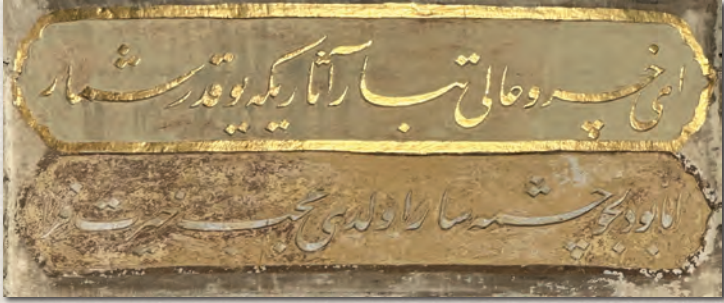 ای خسرو عالی تبار آثاریکه یوقدر شمار
اما بو دلجو چشمه سار اولدی عجب حیرت فزا